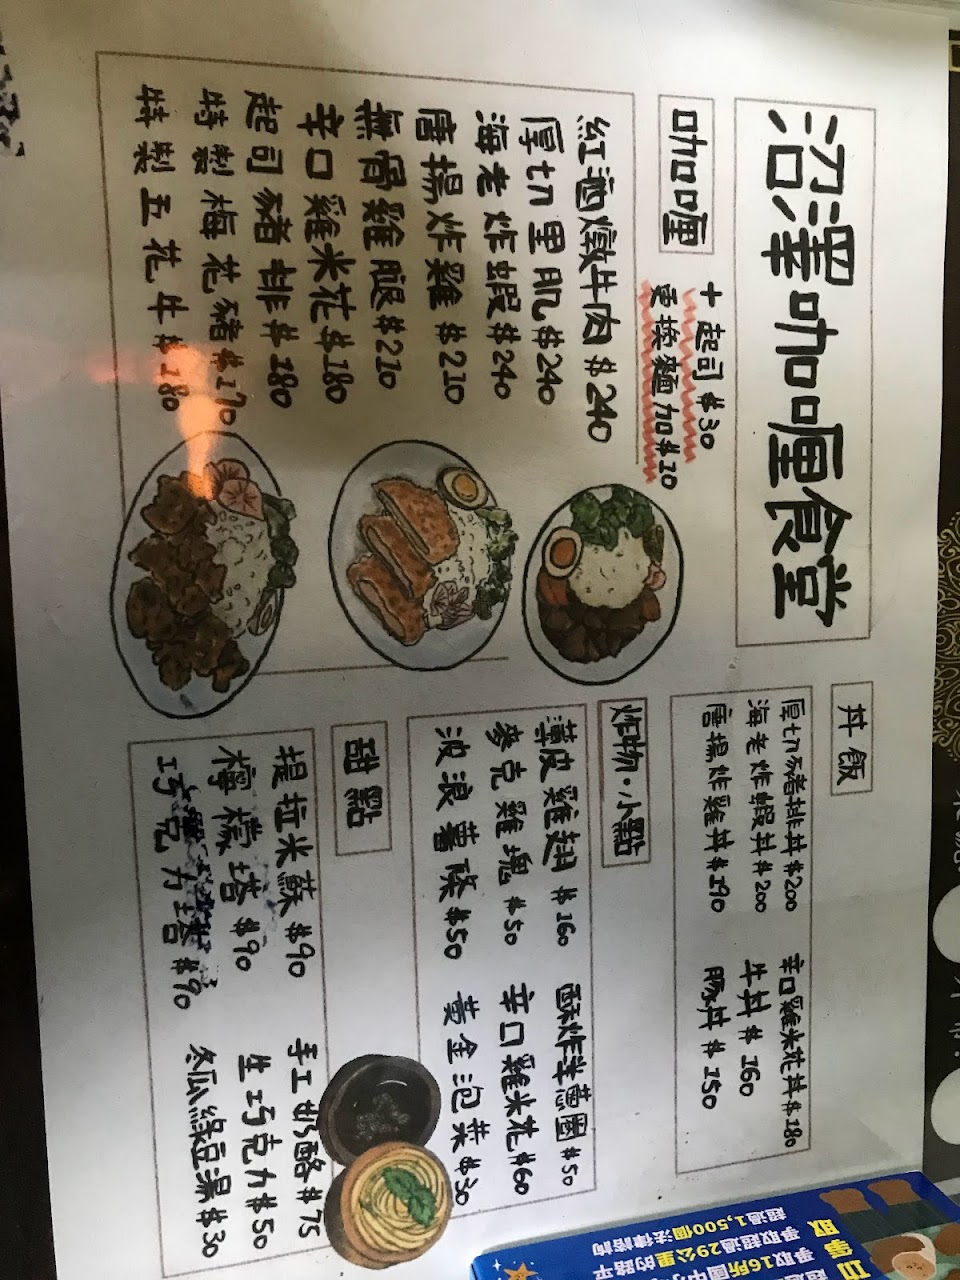 沼澤咖哩食堂
咖哩
+起司$30
更換麵加$10
紅酒燉牛肉$240
厚切里肌$240
海老炸蝦$240
唐揚炸雞$210
無骨雞腿$210
辛口雞米花$180
起司豬排$180
特製梅花豬$170
特製五花牛$180
丼飯
厚切豬排丼$200
海老炸蝦丼$200
唐揚炸雞丼$190
辛口雞米花丼$180
牛丼$160
豚丼$150
炸物·小點
薄皮雞翅$160
麥克雞塊$50
波浪薯條$50
酥炸洋蔥圈$50
辛口雞米花$60
黃金泡菜$30
甜點
提拉米蘇$90
檸檬塔$90
巧克力塔$90
手工奶酪$75
生巧克力$50
冬瓜綠豆湯$30
爭取16所國中
爭取超過29公里的路平
超過1,500個法律諮詢